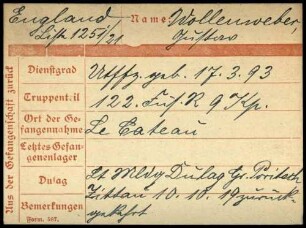 England Name Wollenweber,
Liste 1251/21 Gustav
Aus der Gefangenschaft zurück
Dienstgrad Utffz. geb. 17.3.93
Truppenteil 122. Inf. R 9 Kp.
Ort der Gefangennahme Le Cateau
Letztes Gefangenenlager
Dulag Lt Mldg Dulag Gr. Poritsch
Zittau 10.10.19 zurück-
Bemerkungen gekehrt
Form. 507.